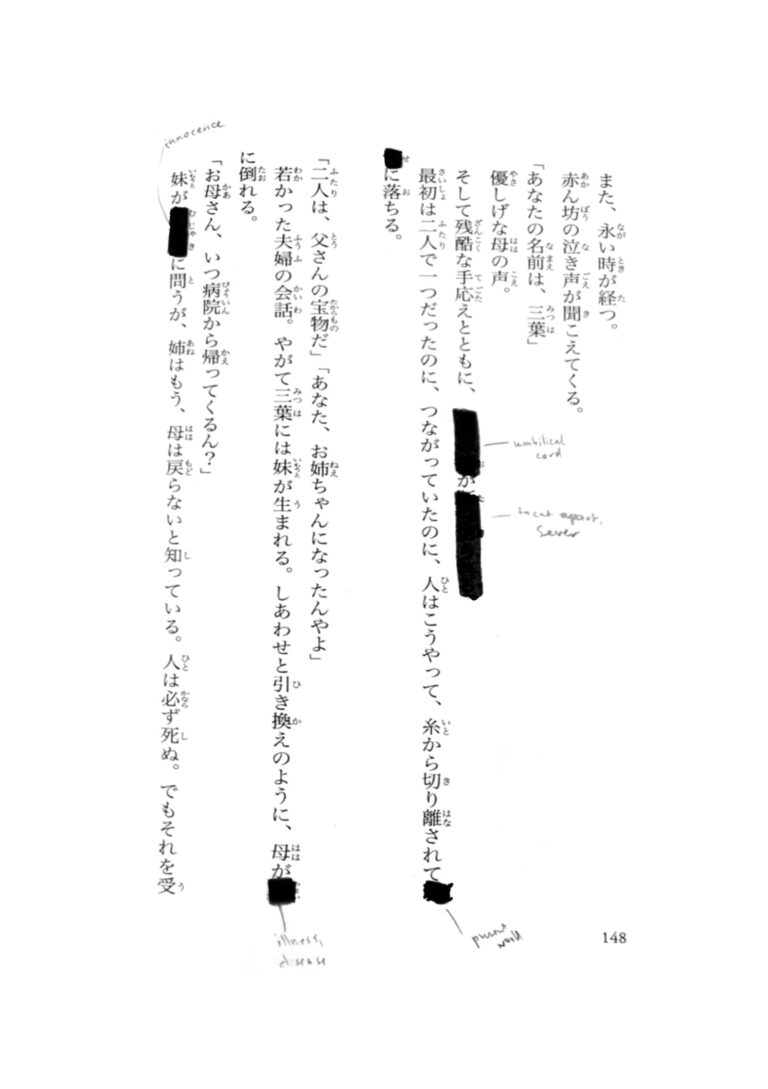 また、永い時が経つ。
赤ん坊の泣き声が聞こえてくる。
「あなたの名前は、三葉」
優しげな母の声。
そして残酷な手応えとともに、が
最初は二人で一つだったのに、つながっていたのに、人はこうやって、糸から切り離されて
に落ちる。
「二人は、父さんの宝物だ」「あなた、お姉ちゃんになったんやよ」
若かった夫婦の会話。やがて三葉には妹が生まれる。しあわせと引き換えのように、母が
に倒れる。
「お母さん、いつ病院から帰ってくるん?」
妹がに問うが、姉はもう、母は戻らないと知っている。人は必ず死ぬ。でもそれを受
148
umbilical
cord
to cut apart,
sever
present
world
illness,
disease
innocence